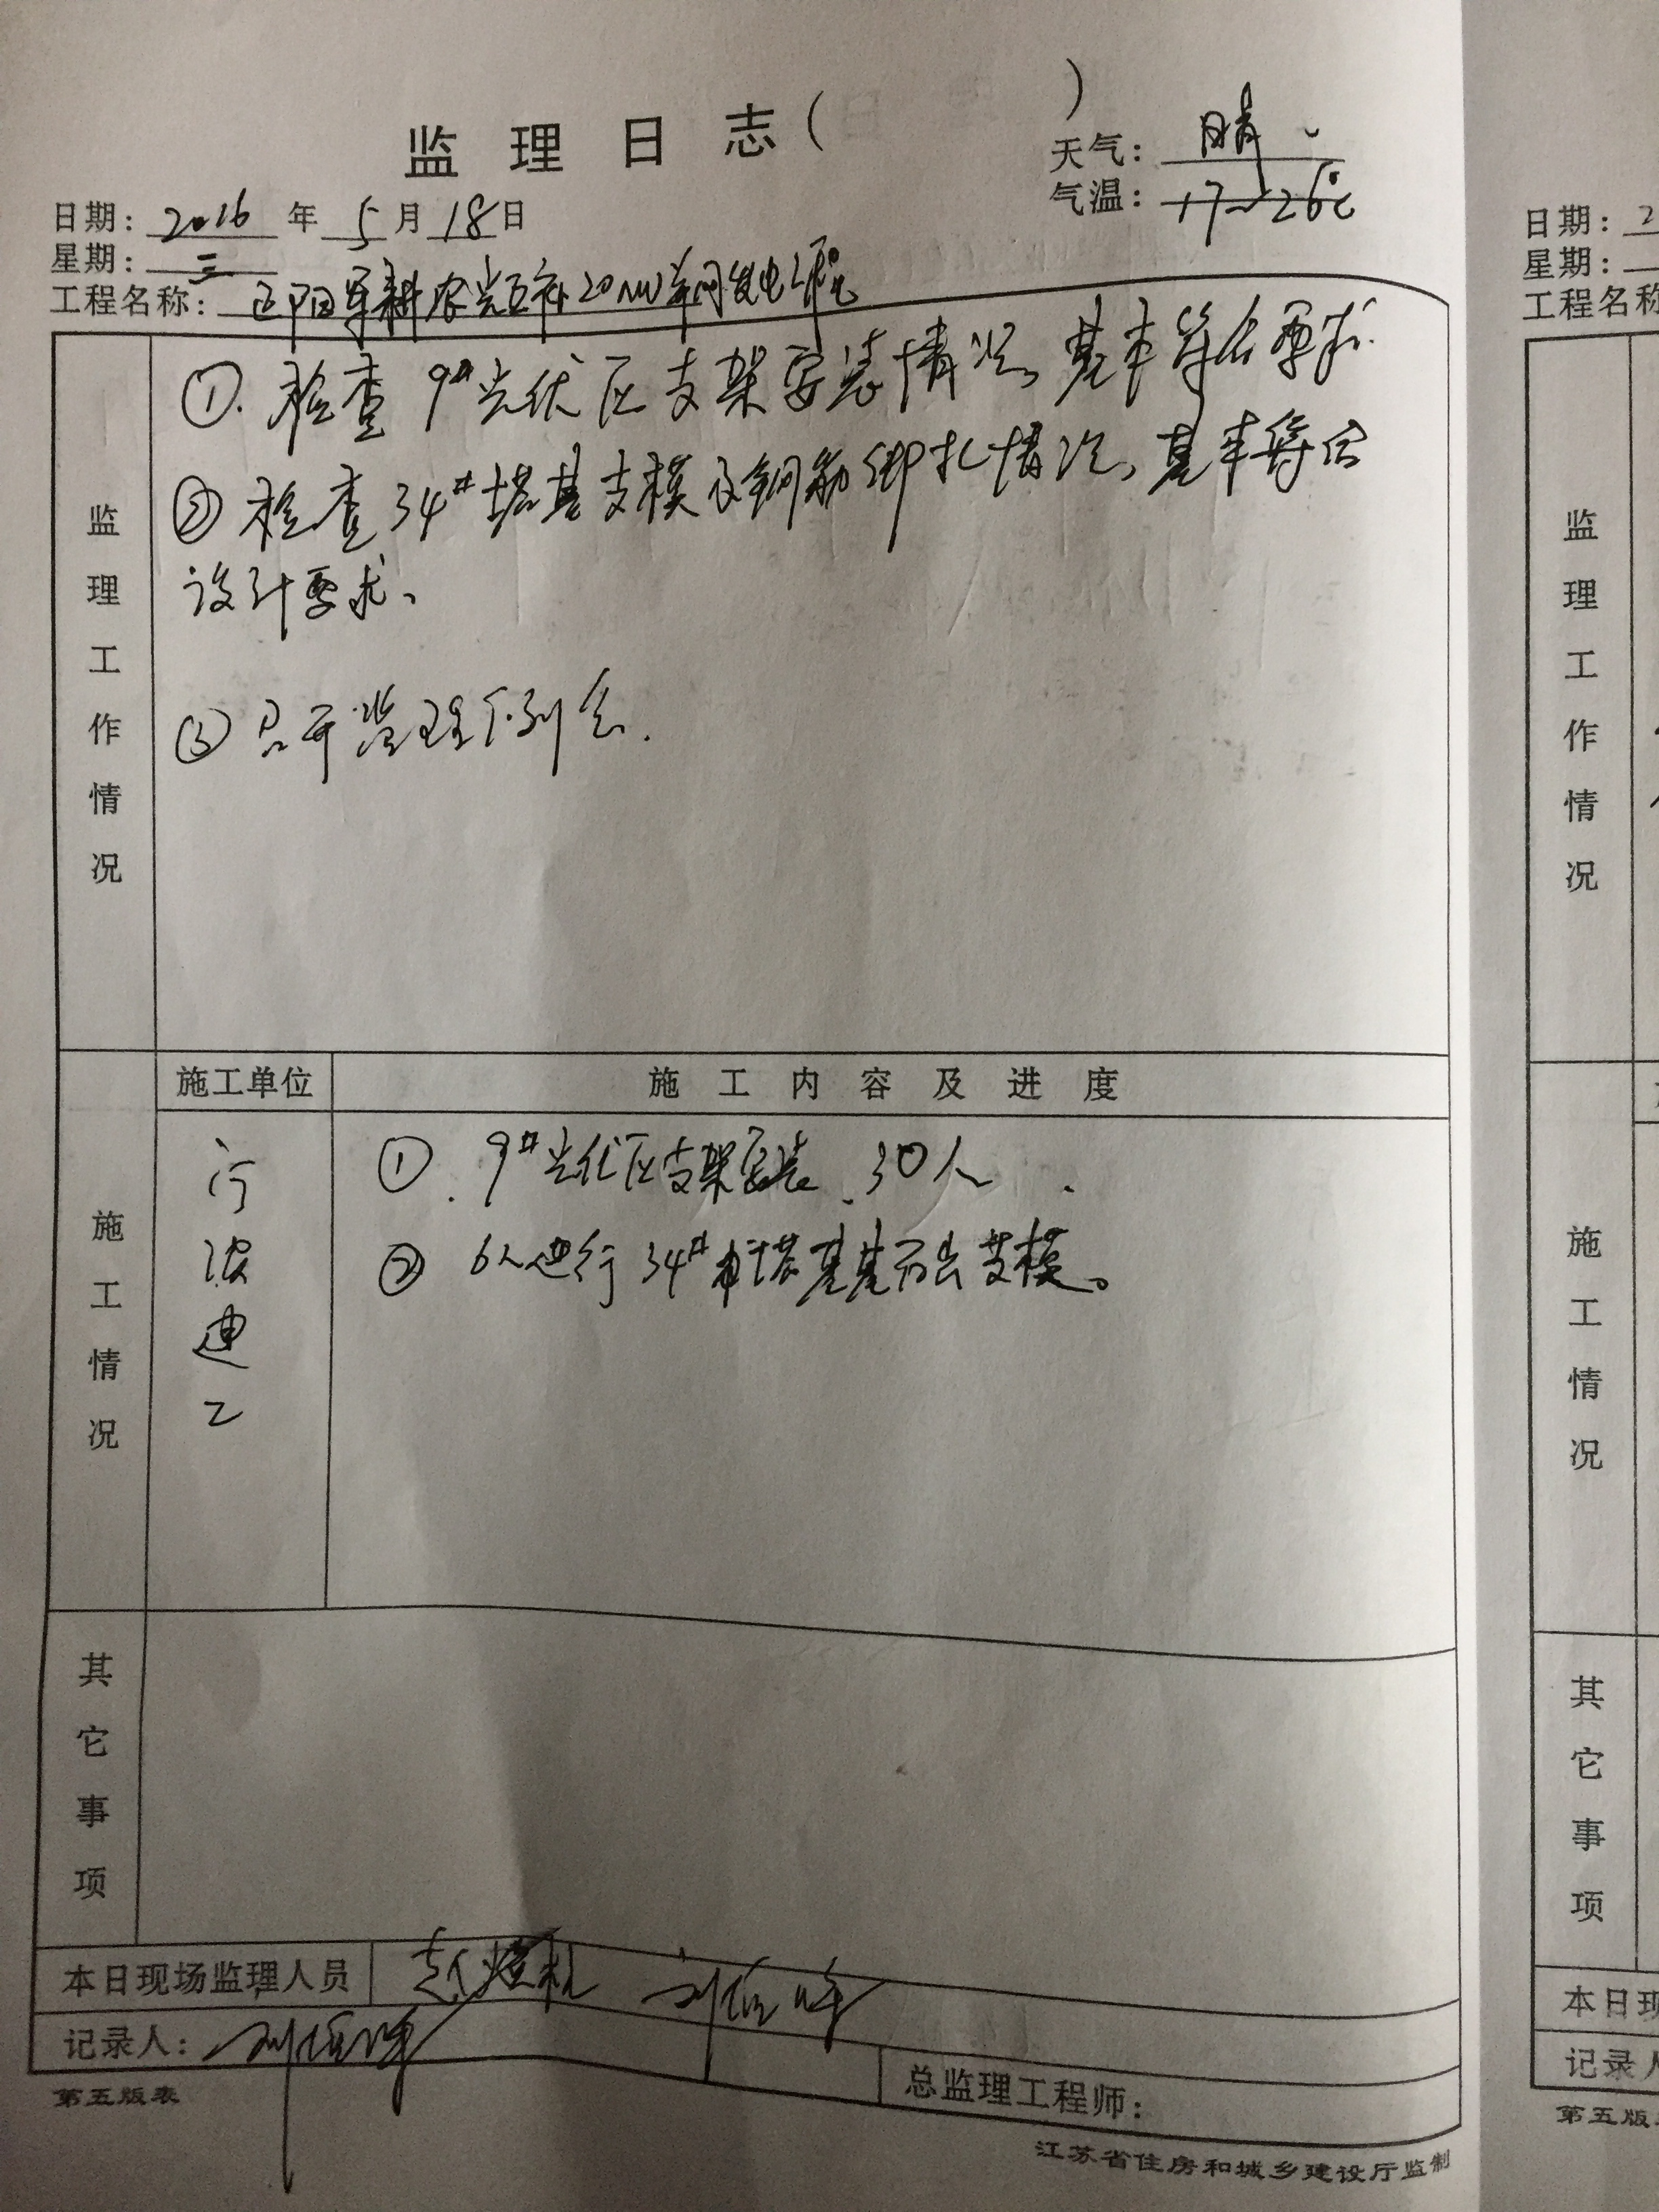 监理日志（ ）
天气：晴
气温：17~26℃
日期：2016年5月18日
星期：三
工程名称：正阳军耕农光互补20MW并网发电工程
监理工作情况
①.检查9#光伏区支架安装情况，基本符合要求.
②检查34#塔基支模及钢筋绑扎情况，基本符合
设计要求、
③召开监理例会.
施工单位 施工内容及进度
施工情况
宁波建乙
①.9#光伏区支架安装、30人.
②6人进行34#塔基基础支模。
其它事项
本日现场监理人员
记录人：
总监理工程师：
第五版表
江苏省住房和城乡建设厅监制
日期：2
星期：
工程名称
监理工作情况
施工情况
其它事项
本日现
记录人
第五版